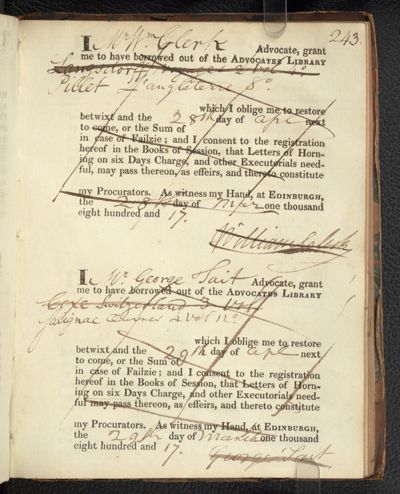 243.
I Mr Wm Clerk Advocate, grant
me to have borrowed out of the ADVOCATES LIBRARY
Langsdorf's Voyages 2 Vol 4o
Pictet Angleterre 8o.
which I oblige me to restore
betwixt and the 28th day of Apl next
to come, or the Sum of
in case of Failzie; and I consent to the registration
hereof in the Books of Session, that Letters of Horn-
ing on six Days Charge, and other Executorials need-
ful, may pass thereon, as effeirs, and thereto constitute
my Procurators. As witness my Hand, at EDINBURGH,
the 28th day of Mar one thousand
eight hundred and 17.
William Clerk
I Mr George Tait Advocate, grant
me to have borrowed out of the ADVOCATES LIBRARY
Coxe Switzerland 3 Vol
2 Vol 12o
which I oblige me to restore
betwixt and the 29th day of Apl next
to come, or the Sum of
in case of Failzie; and I consent to the registration
hereof in the Books of Session, that Letters of Horn-
ing on six Days Charge, and other Executorials need-
ful may pass thereon, as effeirs, and thereto constitute
my Procurators. As witness my Hand, at EDINBURGH,
the 29th day of March one thousand
eight hundred and 17.
George Tait